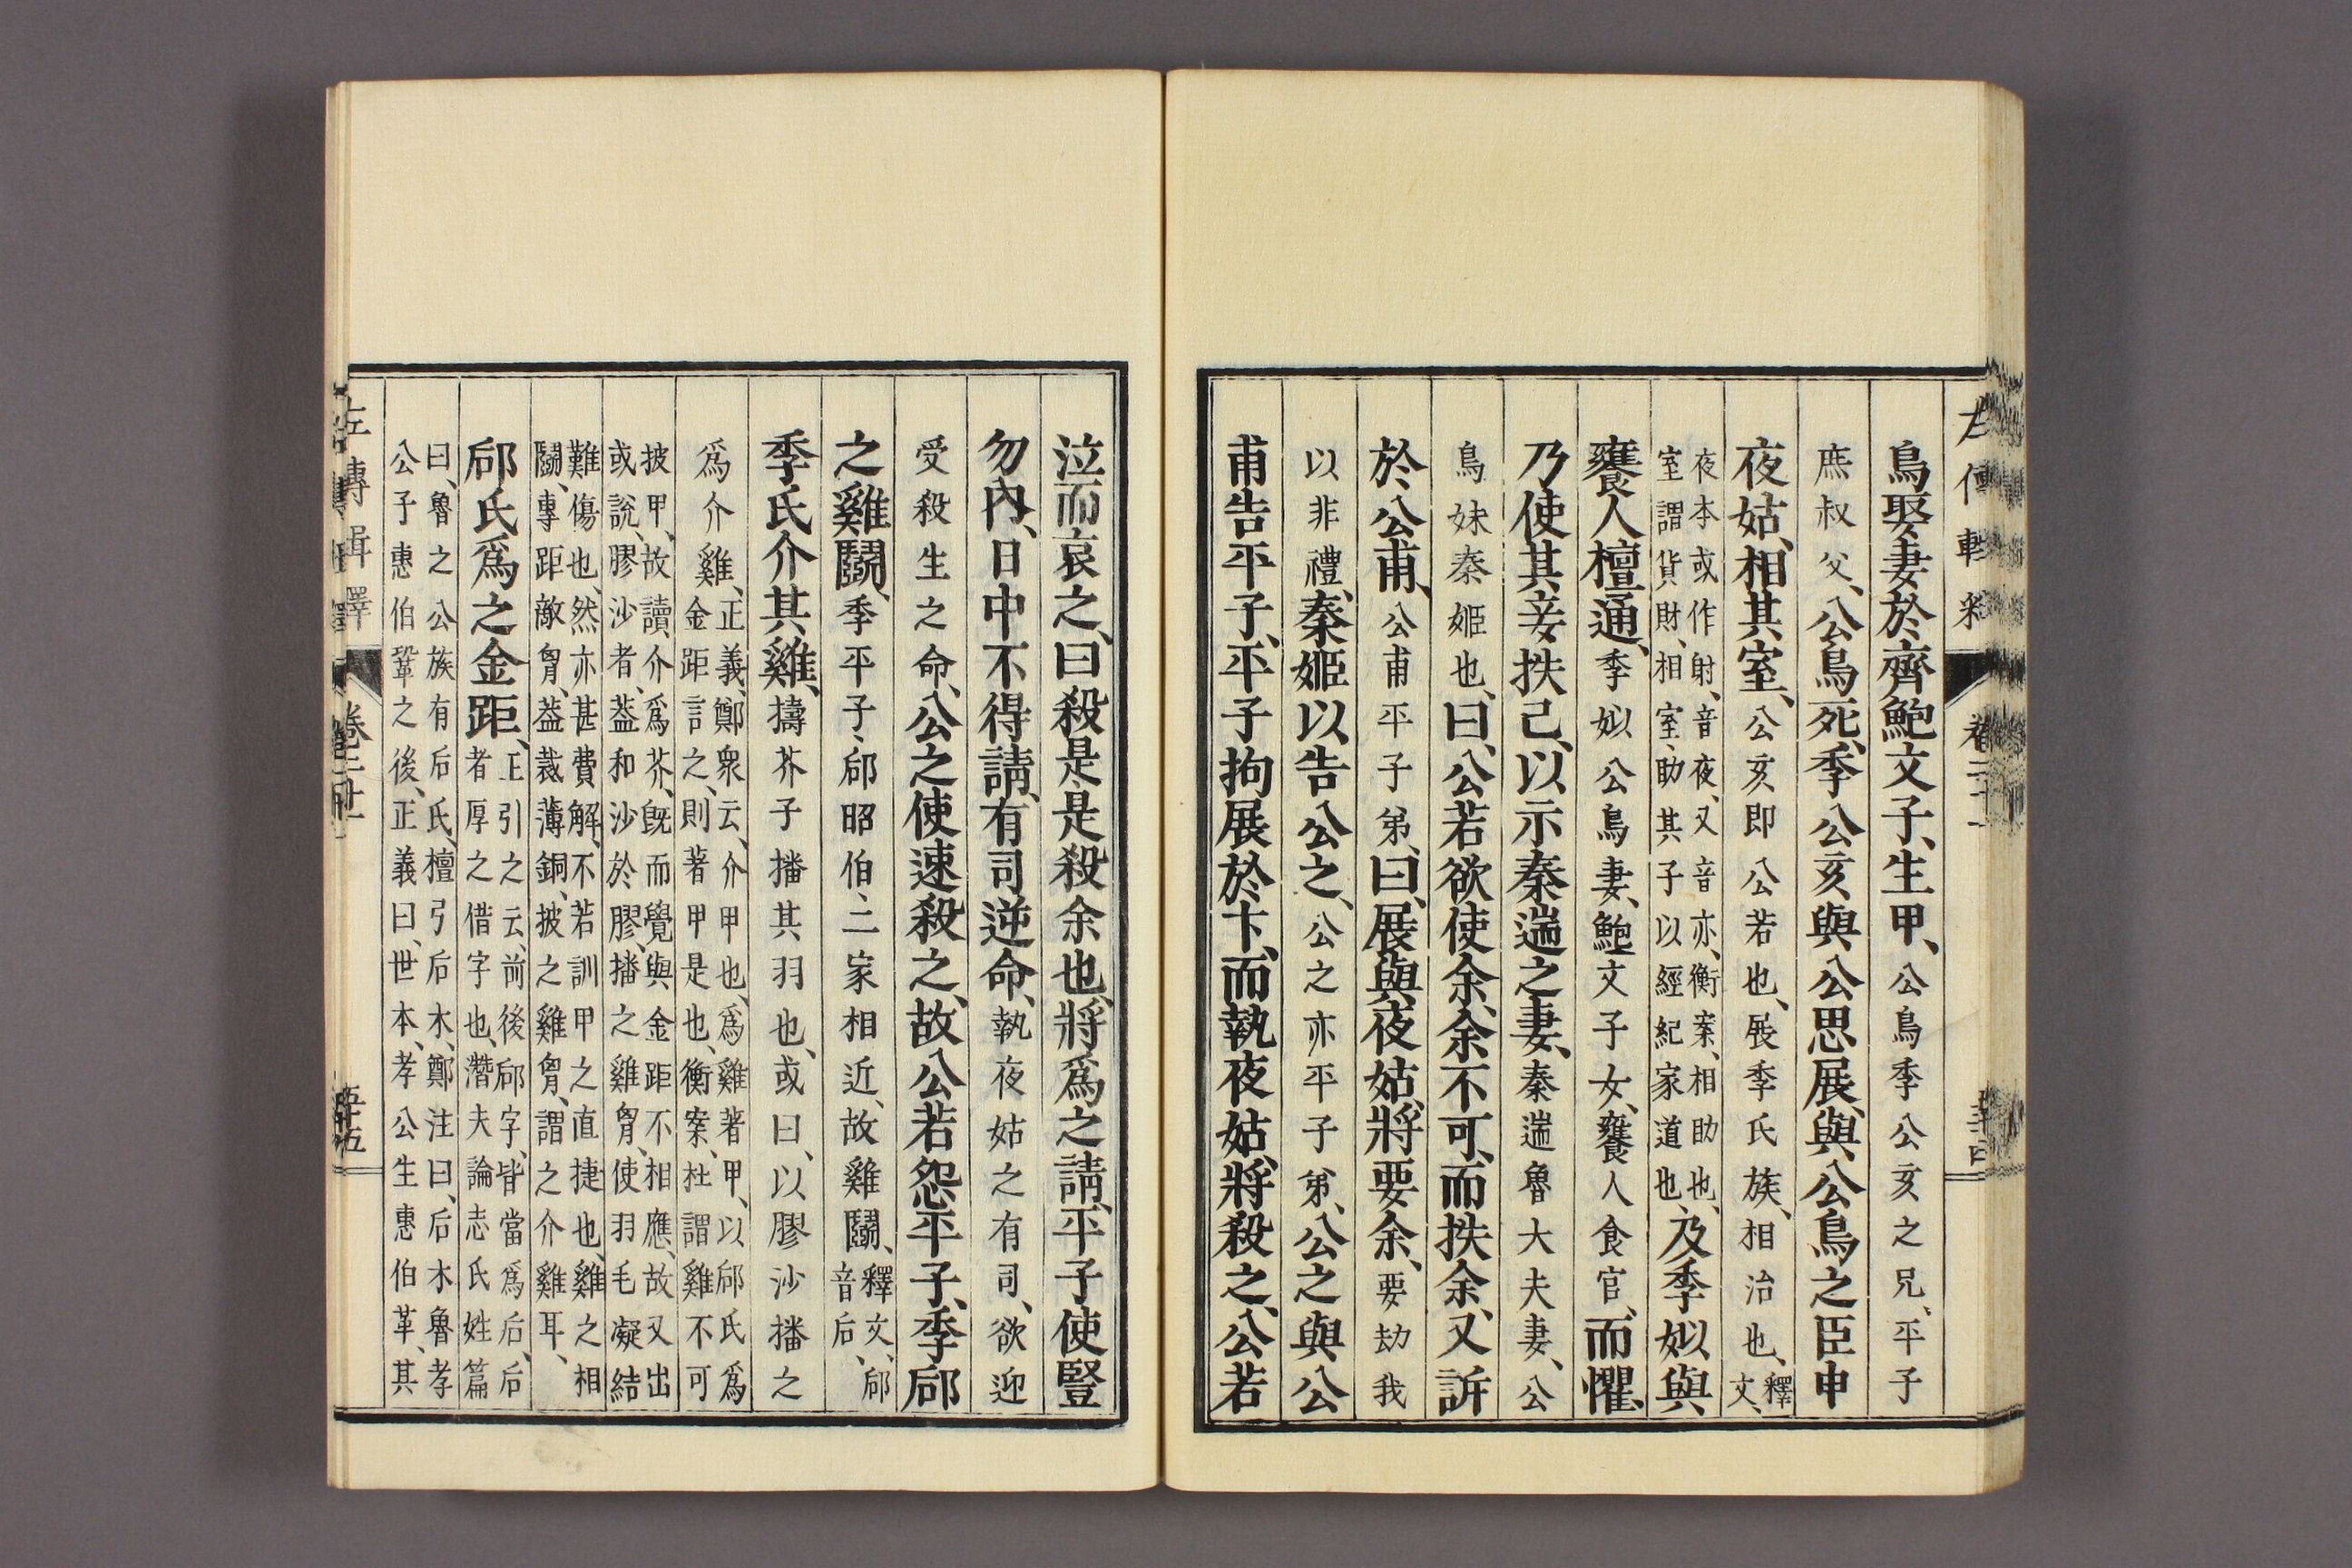 左傳輯釋 卷二十一
鳥娶妻於齊鮑文子、生甲、公鳥季公亥之兄、平子
庶叔父、公鳥死、季公亥與公思展與公鳥之臣申
夜姑、相其室、公亥即公若也、展季氏族、相治也、釋文、
夜本或作射、音夜、又音亦、衡案、相助也、
室謂貨財、相室、助其子以經紀家道也、及季姒與
饔人檀通、季姒公鳥妻、鮑文子女、饔人食官、而懼、
乃使其妾抶己、以示秦遄之妻、秦遄魯大夫妻、公
鳥妹秦姬也、曰、公若欲使余、余不可、而抶余、又訴
於公甫、公甫平子弟、曰、展與夜姑、將要余、要劫我
以非禮、秦姬以告公之、公之亦平子弟、公之與公
甫告平子、平子拘展於卞、而執夜姑、將殺之、公若
泣而哀之、曰殺是是殺余也、將爲之請、平子使豎
勿內、日中不得請、有司逆命、執夜姑之有司、欲迎
受殺生之命、公之使速殺之、故公若怨平子、季郈
之雞鬭、季平子、郈昭伯、二家相近、故雞鬭、釋文、郈音后、
季氏介其雞、擣芥子播其羽也、或曰、以膠沙播之
爲介雞、正義、鄭衆云、介甲也、爲雞著甲、以郈氏爲
金距言之、則著甲是也、衡案、杜謂雞不可
披甲、故讀介爲芥、旣而覺與金距不相應、故又出
或說、膠沙者、蓋和沙於膠、播之雞胷、使羽毛凝結
難傷也、然亦甚費解、不若訓甲之直捷也、雞之相
鬭、專距敵胷、蓋裁薄銅、披之雞胷、謂之介雞耳、
郈氏爲之金距、正引之云、前後郈字、皆當爲后、后
者厚之借字也、潛夫論志氏姓篇
曰、魯之公族有后氏、檀弓后木、鄭注曰、后木魯孝
公子惠伯鞏之後、正義曰、世本、孝公生惠伯革、其
左傳輯釋 卷二十一 五十五